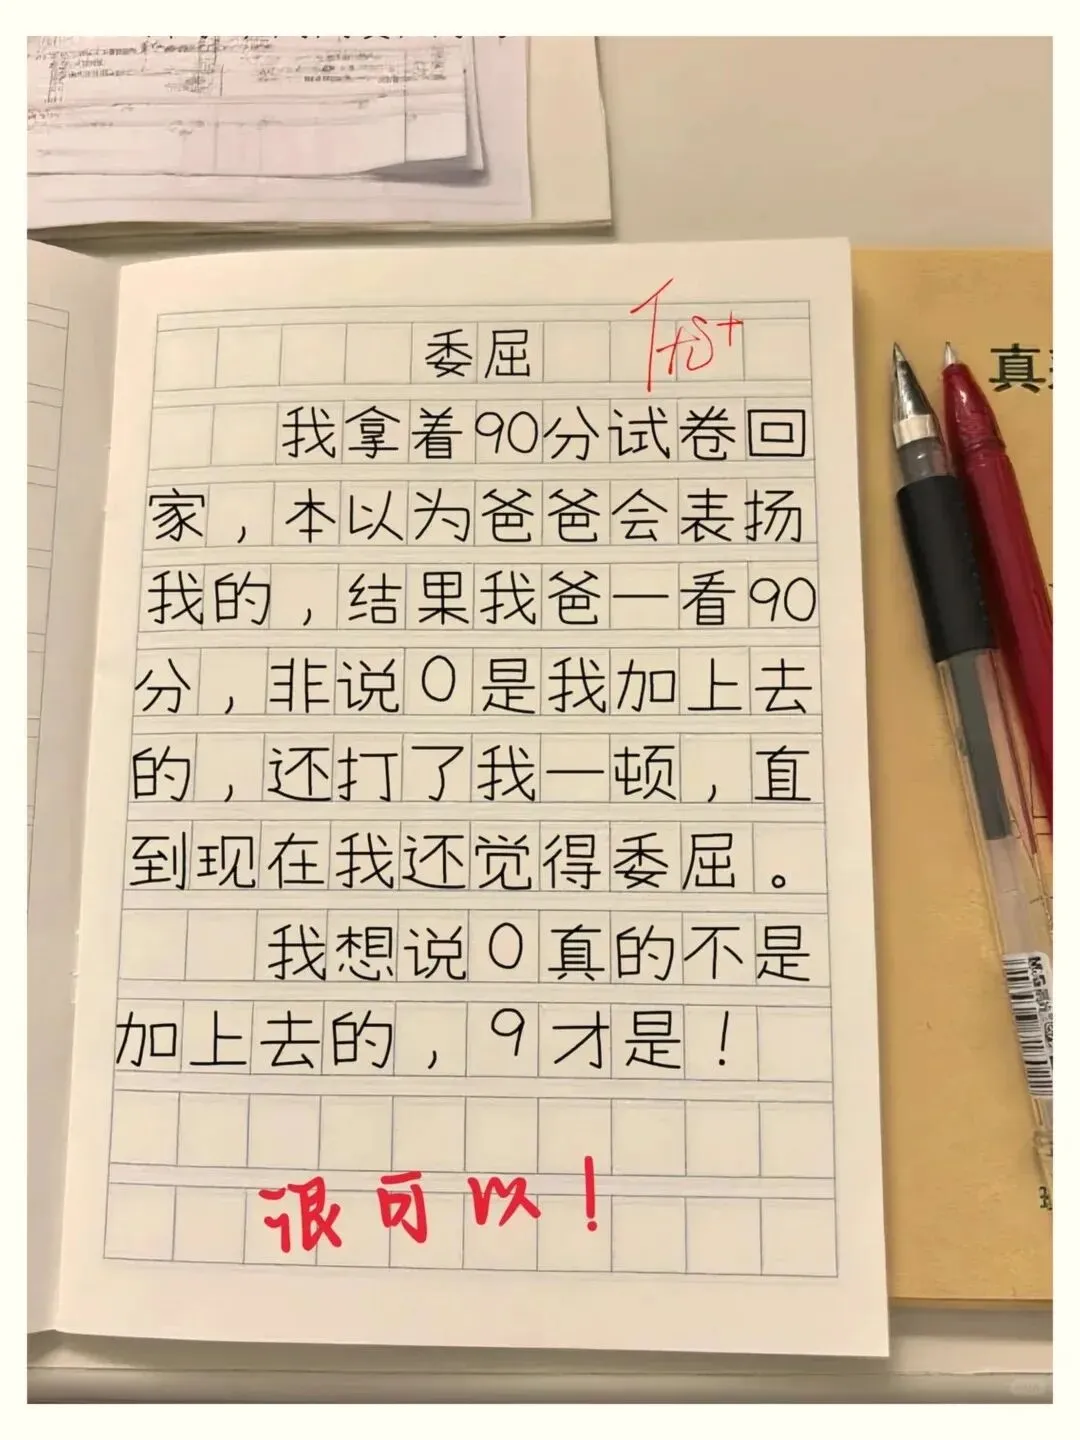 委屈
优+
我拿着90分试卷回
家，本以为爸爸会表扬
我的，结果我爸一看90
分，非说0是我加上去
的，还打了我一顿，直
到现在我还觉得委屈。
我想说0真的不是
加上去的，9才是！
很可以！
真
M&G